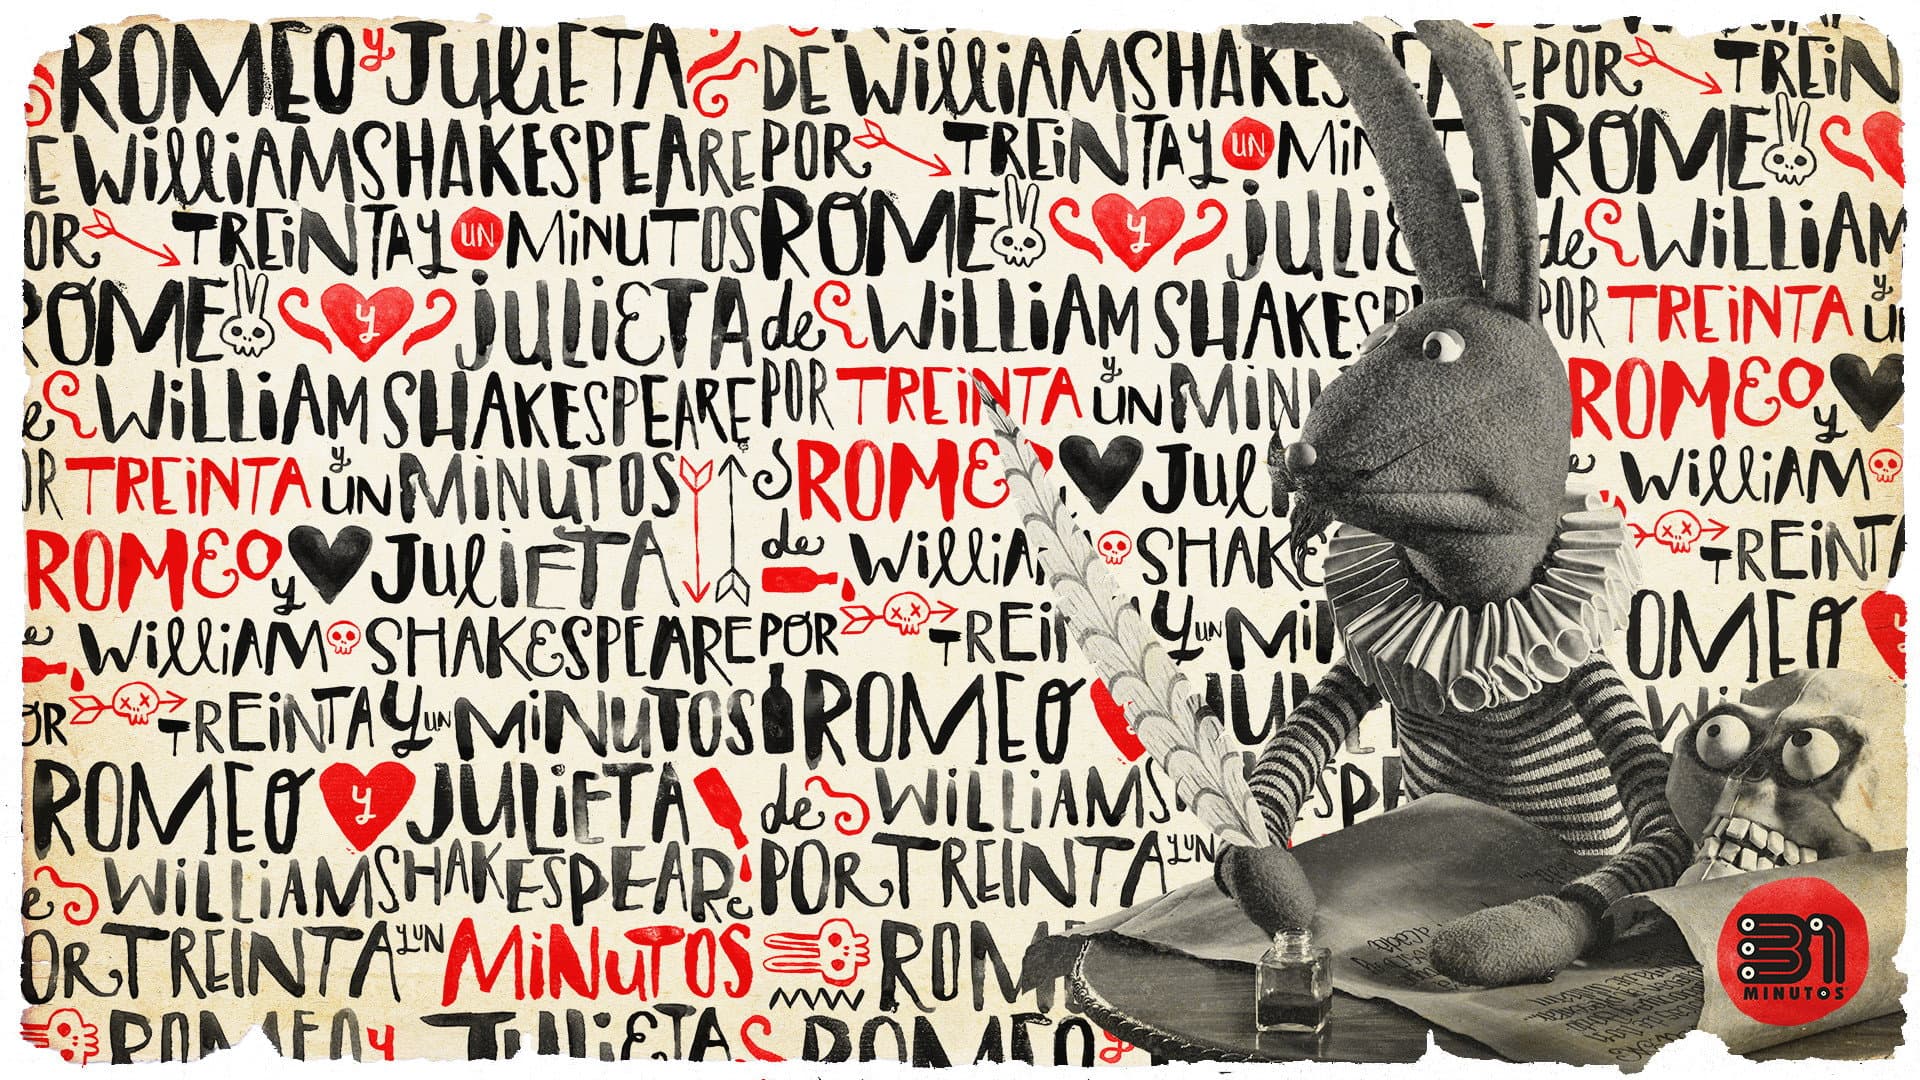 ROMEO y JULIETA DE WilliAM SHAKESPE POR TREIN
E WilliAM SHAKESPEARE POR TREINTA Y UN MIN ROME
OR TREINTA Y UN MINUTOS ROME y JULIE de WilliAM
ROME y JULIETA de WILLIAM SHAKESP POR TREINTA y U
e WILLIAM SHAKESPEARE POR TREINTA y UN MINU ROMEO y
OR TREINTA y UN MINUTOS ROMEO JUL e WilliAM
ROMEO y JULIETA de WilliA SHAKE TREINTA
e WilliAM SHAKESPEARE POR TREI Y UN MI OMEO
OR TREINTA Y UN MINUTOS ROMEO JU Wi
ROMEO y JULIETA de WILLIAM S SP
e WILLIAM SHAKESPEARE POR TREINTA Y UN
OR TREINTA Y UN MINUTOS ROM
ROMEO y JULIETA ROMEO y
31
MINUTOS